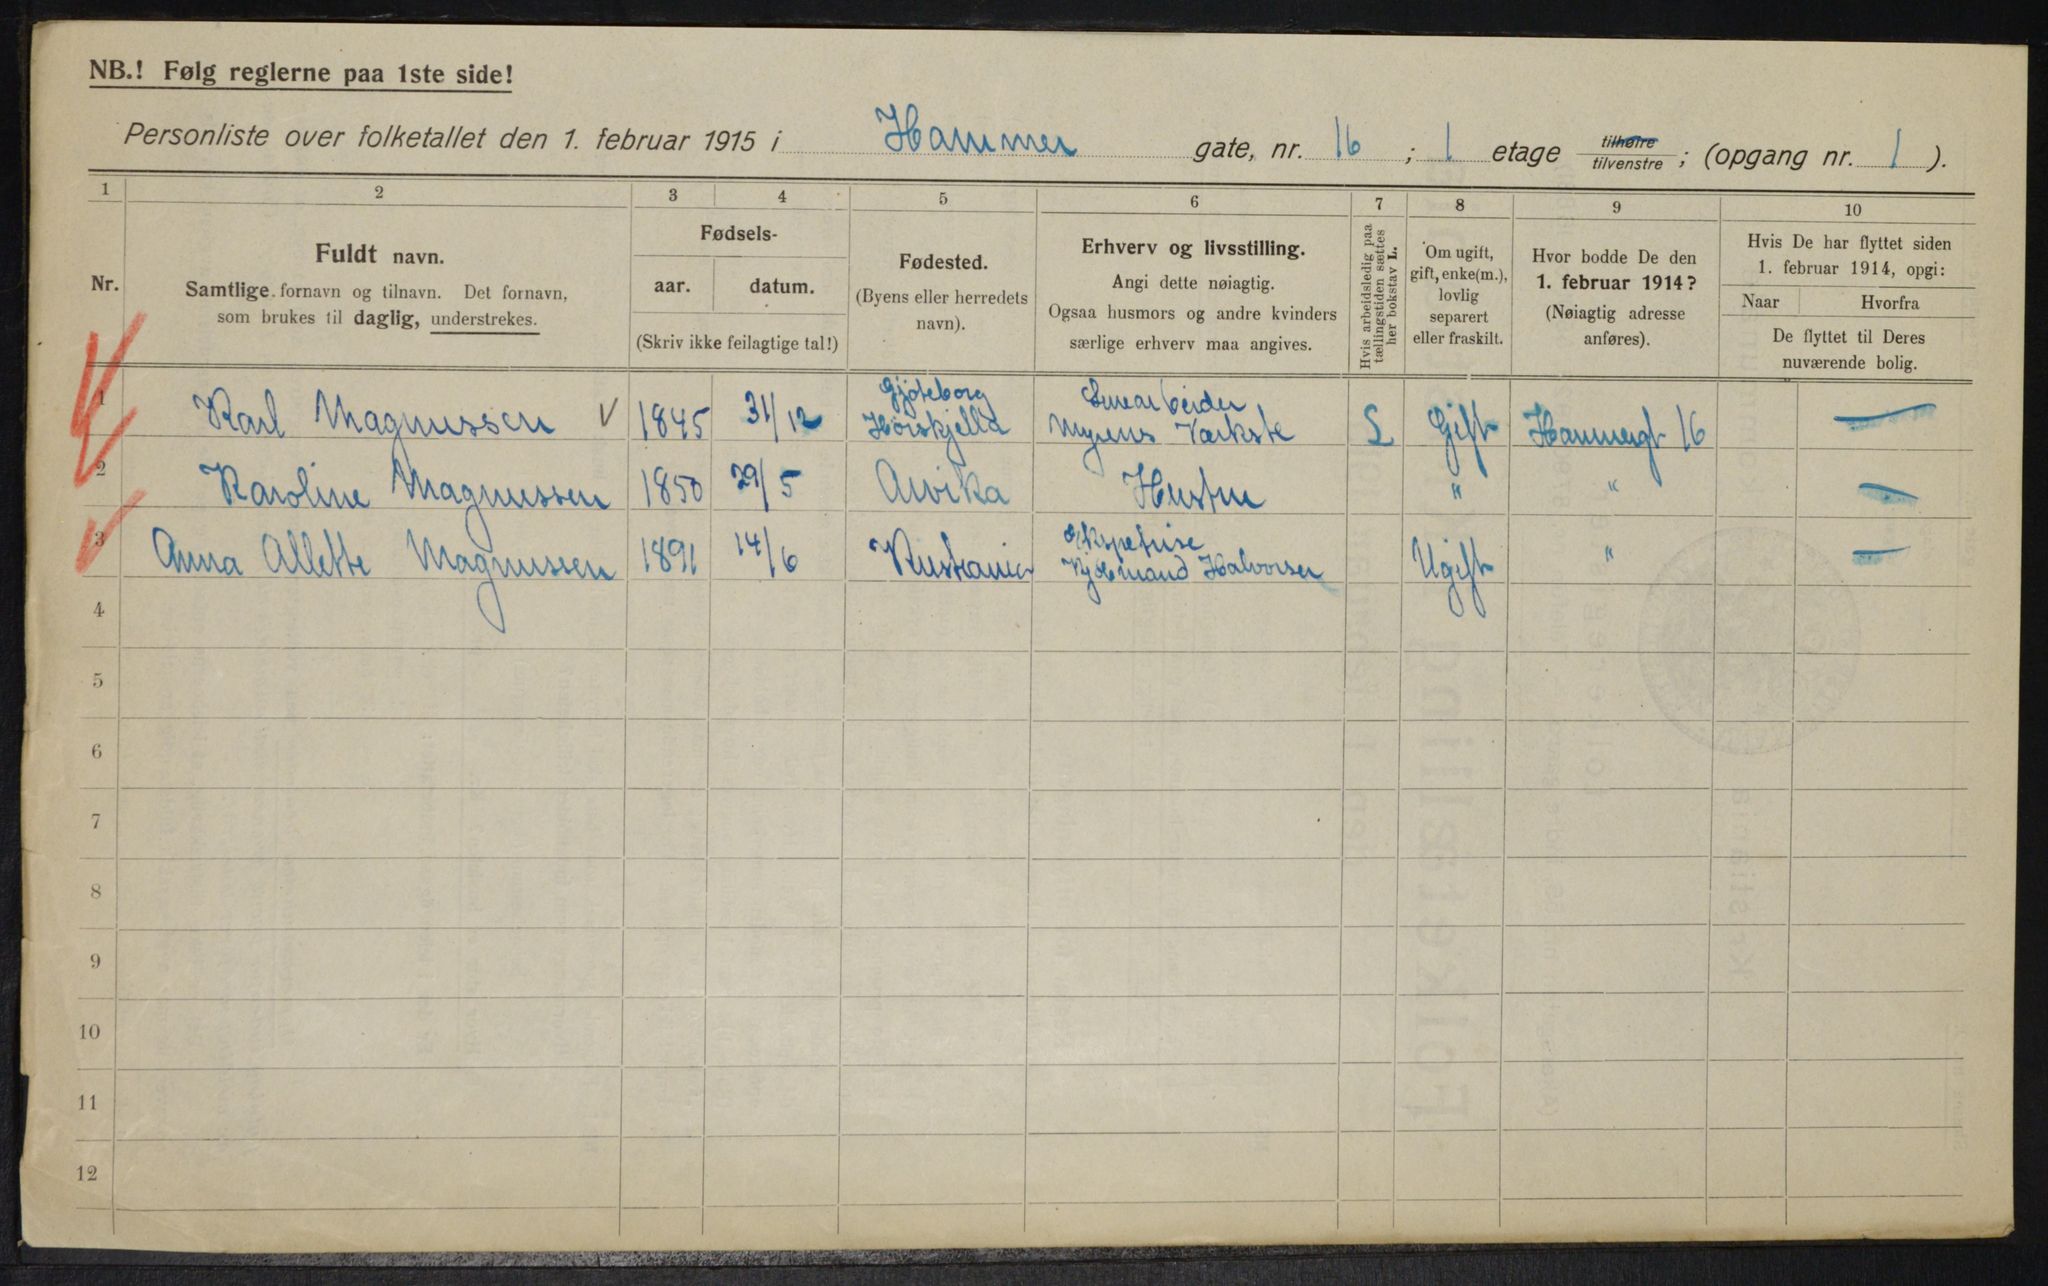 NB.! Følg reglerne paa 1ste side!
Personliste over folketallet den 1. februar 1915 i Hammer gate, nr. 16 ; 1 etage tilhøire / tilvenstre ; (opgang nr. 1 ).
1 2 3 4 5 6 7 8 9 10
Nr.
Fuldt navn.
Samtlige fornavn og tilnavn. Det fornavn,
som brukes til daglig, understrekes.
Fødsels-
aar. datum.
(Skriv ikke feilagtige tal!)
Fødested.
(Byens eller herredets
navn).
Erhverv og livsstilling.
Angi dette nøiagtig.
Ogsaa husmors og andre kvinders
særlige erhverv maa angives.
Hvis arbeidsledig paa
tællingstiden sættes
her bokstav L.
Om ugift,
gift, enke(m.),
lovlig
separert
eller fraskilt.
Hvor bodde De den
1. februar 1914?
(Nøiagtig adresse
anføres).
Hvis De har flyttet siden
1. februar 1914, opgi:
Naar Hvorfra
De flyttet til Deres
nuværende bolig.
Gjøteborg
1 Karl Magnussen 1845 31/12 Myrens Værkste L Gift Hammergt 16 —
2 Karoline Magnussen 1850 29/5 Arvika Hustru " " —
3 Anna Allette Magnussen 1891 14/6 Kristiania Kjøbmand Halvorsen Ugift " —
4
5
6
7
8
9
10
11
12